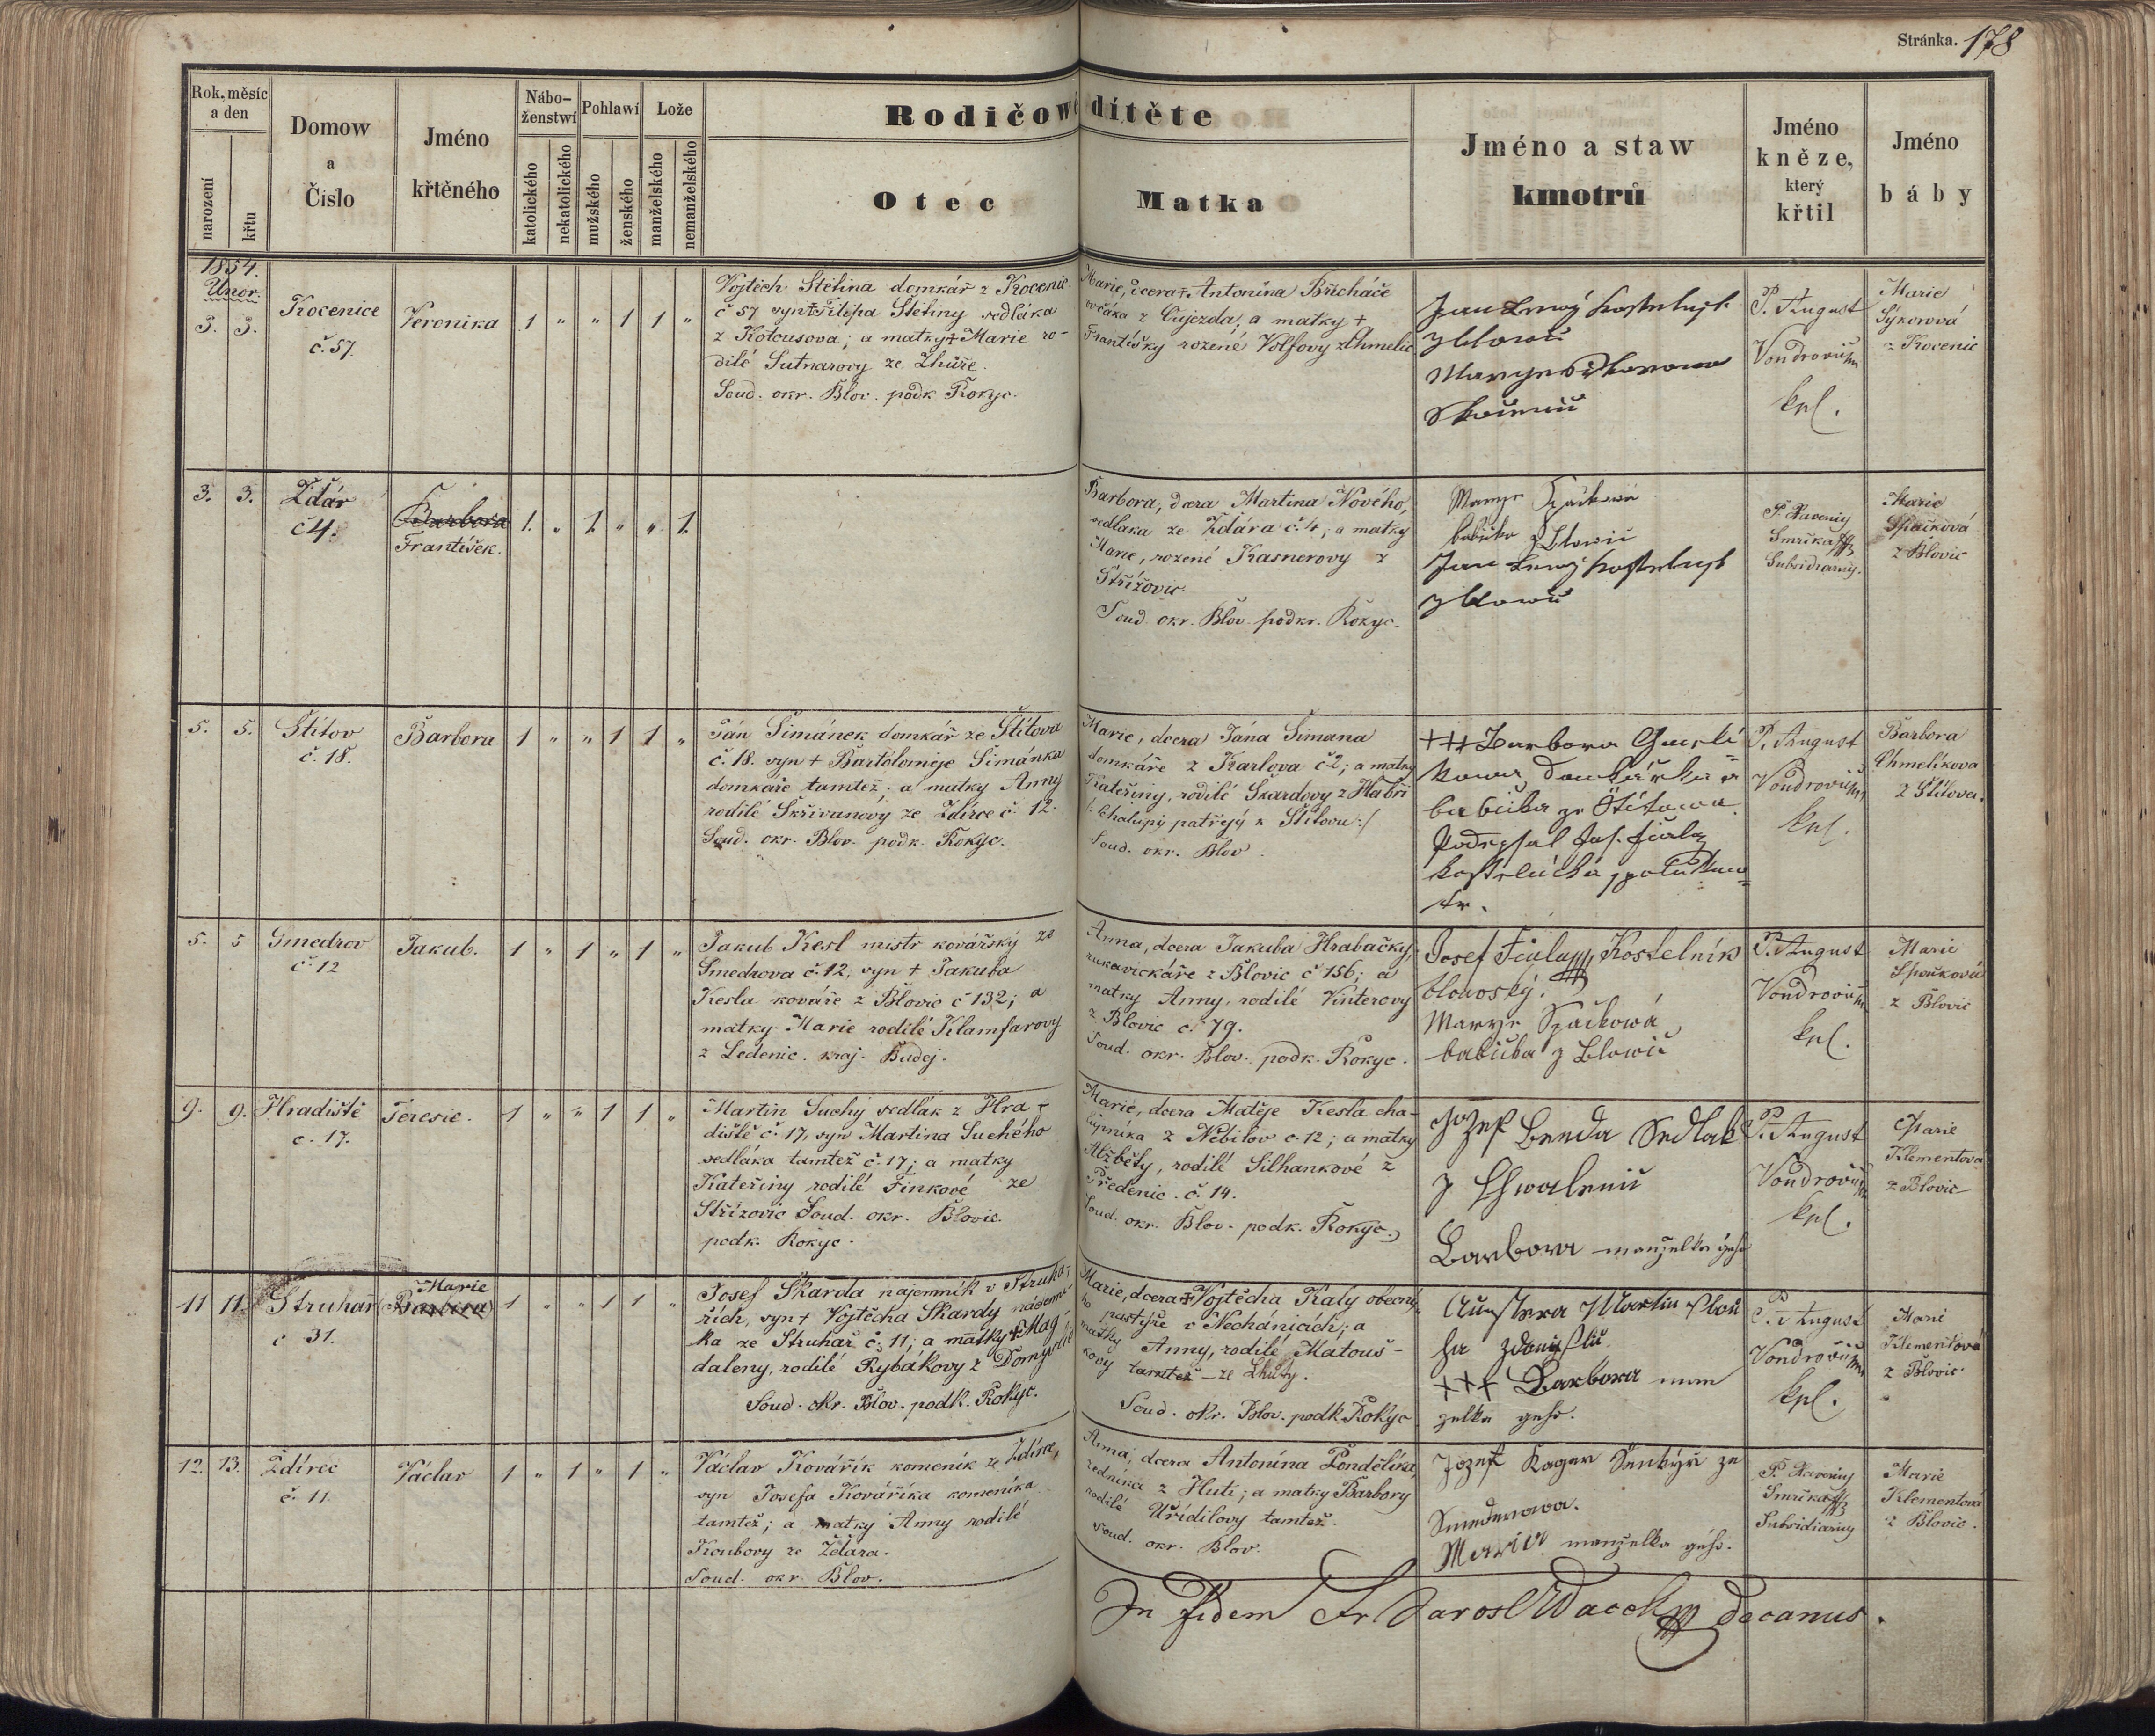 Stránka. 178
Rok, měsíc
a den
narození
křtu
Domow
a
Čislo
Jméno
křtěného
Nábo-
ženstwí
katolického
nekatolického
Pohlawí
mužského
ženského
Lože
manželského
nemanželského
Rodičowé dítěte
Otec
Matka
Jméno a staw
kmotrů
Jméno
kněze,
který
křtil
Jméno
báby
1854.
Únor.
3. 3.
Kocenice
č. 57.
Veronika
1 " " 1 1 "
Vojtěch Stětina domkář z Kocenic
č 57 syn + Filipa Stětiny sedláka
z Kotousova; a matky + Marie ro-
dilé Sutnarovy ze Lhůře.
Soud. okr. Blov. podk Rokyc.
Marie, dcera + Antonína Břicháče
ovčáka z Oujezda; a matky +
Františky rozené Volfovy z Chmelic
P. August
kpl.
Marie
Sýkorová
z Kocenic
3. 3.
Ždár
č 4.
Barbora
František.
1. " 1 " " 1
Barbora, dcera Martina Nového,
sedláka ze Ždára č. 4; a matky
Marie, rozené Kasnerovy z
Střížovic.
Soud. okr. Blov. podkr. Rokyc.
Marye Spačkowá
babička z Blowic
Smrčka
Subsidiarius.
Marie
Spačková
z Blovic
5. 5.
Štítov
č. 18.
Barbora
1 " " 1 1 "
Ján Šimánek domkář ze Štítova
č. 18. syn + Bartoloměje Šimánka
domkáře tamtéž; a matky Anny
rodilé Skřivanovy ze Ždírce č. 12.
Soud. okr. Blov. podk. Rokyc.
Marie, dcera Jána Šimana
domkáře z Karlova č 2; a matky
Kateřiny, rodilé Škardovy z Habří
/: Chalupy patřejý k Štítovu:/
Soud. okr. Blov.
+++ Barbora
babička ze Štítowa
P. August
kpl.
Barbora
Chmelíkova
z Štítova.
5. 5
Smedrov
č. 12
Jakub.
1 " 1 " 1 "
Jakub Kesl mistr kovářský ze
Smedrova č. 12, syn + Jakuba
Kesla kováře z Blovic č 132; a
matky Marie rodilé Klamfarovy
z Ledenic. kraj. Budej.
Anna, dcera Jakuba Hrabačky,
rukavickáře z Blovic č 156; a
matky Anny, rodilé Vinterovy
z Blovic č. 79.
Soud. okr. Blov. podk. Rokyc.
Josef Fiala, Kostelník
blovoský.
Marye Spačkowá
babička z Blowic
P. August
kpl.
Marie
Spačková
z Blovic
9. 9.
Hradiště
č. 17.
Teresie.
1 " " 1 1 "
Martin Suchý sedlák z Hra-
diště č. 17, syn Martina Suchého
sedláka tamtéž č. 17; a matky
Kateřiny rodilé Finkové ze
Střížovic Soud. okr. Blovic.
podk. Rokyc.
Marie, dcera Matěje Kesla cha-
lupníka z Nebilov č. 12; a matky
Alžběty, rodilé Silhankové z
Předenic. č. 14.
Soud. okr. Blov. podk. Rokyc.
Jozef Benda Sedlak
z Chwalenic
Barbora manželka geho
P. August
kpl.
Marie
Klementova
z Blovic
11 11.
Struhař
č 31.
Marie
(Barbora)
1 " " 1 1 "
Josef Škarda nájemník v Struha-
řích, syn + Vojtěcha Škardy nájemní-
ka ze Struhař č. 11; a matky + Mag-
daleny, rodilé Rybákovy z Domyšl
Soud. okr. Blov. podk. Rokyc.
Marie, dcera + Vojtěcha Kaly obecní-
ho pastýře v Nechánicích; a
matky Anny, rodilé Matouš-
kovy tamtéž - ze Lhuty.
Soud. okr. Blov. podk Rokyc
+++ Barbora man
zelka geho.
P. August
kpl.
Marie
Klementová
z Blovic
12. 13.
Ždírec
č. 11.
Václav
1 " 1 " 1 "
Václav Kovářík komeník ze Ždírce,
syn Josefa Kováříka komeníka
tamtéž; a matky Anny rodilé
Koubovy ze Ždára.
Soud. okr Blov.
Anna, dcera Antonína Pondělíka,
zedníka z Hutí; a matky Barbory
rodilé Uřídilovy tamtéž.
Soud. okr. Blov.
Jozef Kager
Smederowa.
Maria manželka geho.
Smrčka
Subsidiarius
Marie
Klementová
z Blovic.
In fidem Fr Jarosl Wacek decanus.